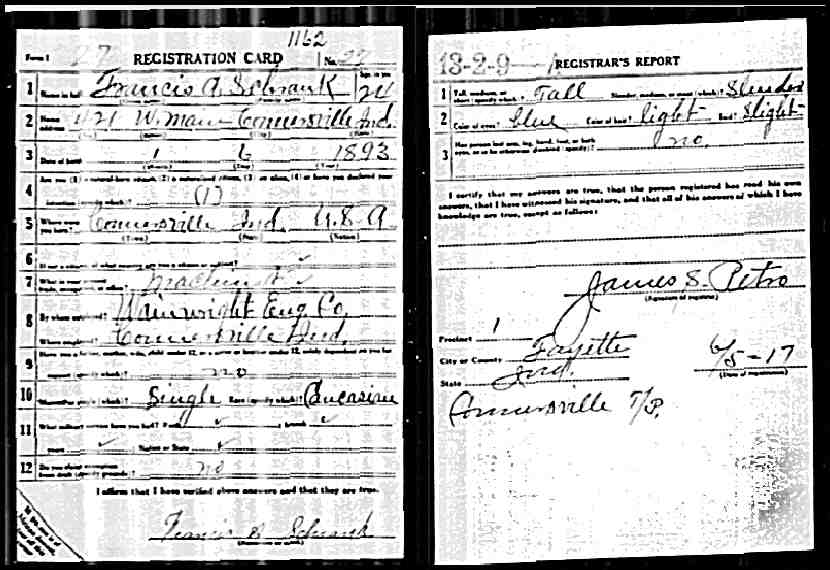 1162
Form 1 27 REGISTRATION CARD No. 22
1 Name in full Francis A. Schrank Age, in yrs 24
2 Home address 421 W. Main Connersville Ind.
3 Date of birth 1 6 1893
(Month) (Day) (Year)
4 Are you (1) a natural-born citizen, (2) a naturalized citizen, (3) an alien, (4) or have you declared your
intention (specify which)? (1)
5 Where were you born? Connersville Ind. U.S.A.
(Town) (State) (Nation)
6 If not a citizen, of what country are you a citizen or subject?
7 What is your present trade, occupation, or office? Machinist
8 By whom employed? Wainwright Eng. Co.
Where employed? Connersville Ind.
9 Have you a father, mother, wife, child under 12, or a sister or brother under 12, solely dependent on you for
support (specify which)? no
10 Married or single (which)? Single Race (specify which)? Caucasian
11 What military service have you had? Rank ; branch
years ; Nation or State
12 Do you claim exemption from draft (specify grounds)? no
I affirm that I have verified above answers and that they are true.
Francis A. Schrank
13-2-9 A REGISTRAR'S REPORT
1 Tall, medium, or short (specify which)? Tall Slender, medium, or stout (which)? Slender
2 Color of eyes? blue Color of hair? light Bald? Slight
3 Has person lost arm, leg, hand, foot, or both
eyes, or is he otherwise disabled (specify)? no.
I certify that my answers are true, that the person registered has read his own
answers, that I have witnessed his signature, and that all of his answers of which I have
knowledge are true, except as follows:
James S. Petro
(Signature of registrar)
Precinct 1
City or County Fayette 6/5-17
State Ind. (Date of registration)
Connersville T/P.